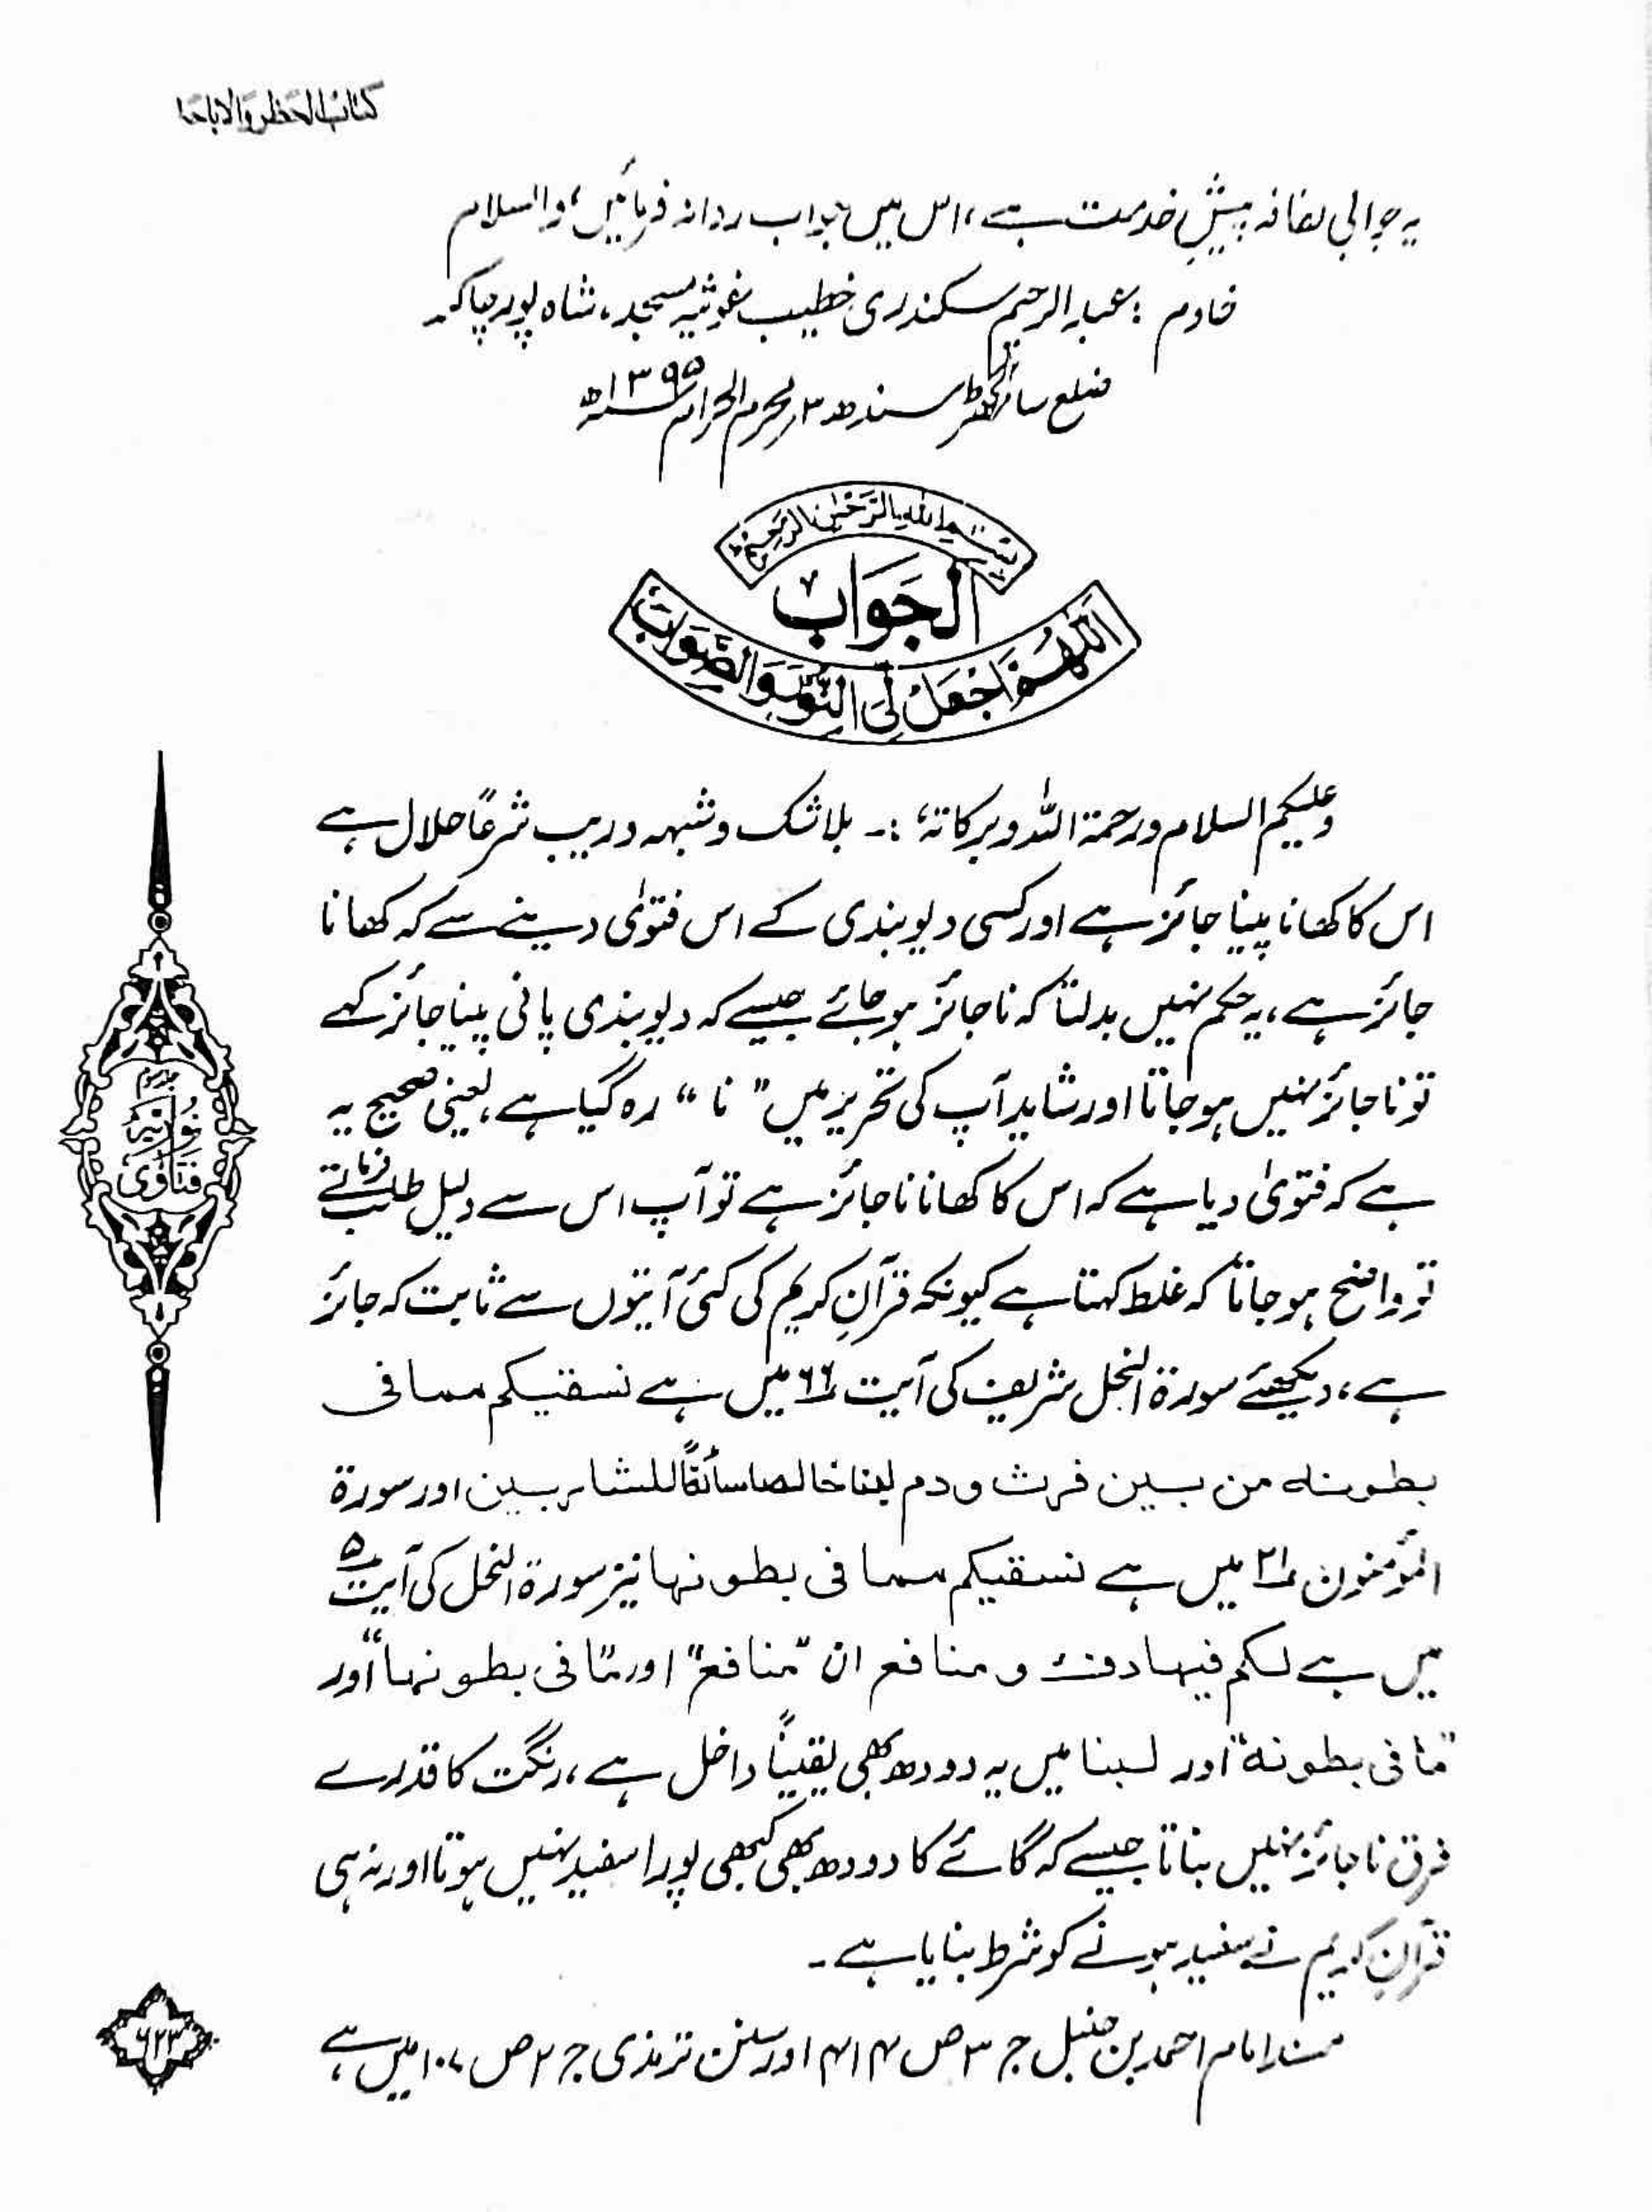 کتاب الحظر والاباحۃ
یہ جوابی لفافہ پیشِ خدمت ہے، اس میں جواب روانہ فرمائیں، والسلام
خادم : عبدالرحیم سکندری خطیب غوثیہ مسجد، شاہ پور چاکر
ضلع سانگھڑ سندھ ۳ محرم الحرام ۱۳۹۵ھ
بسم اللہ الرحمٰن الرحیم
الجَوَاب
اَللّٰھُمَّ اجْعَلْ لِیَ النُّوْرَ وَالصَّوَابَ
وعلیکم السلام ورحمۃ اللہ وبرکاتہٗ :۔ بلاشک و شبہہ و ریب شرعًا حلال ہے
اس کا کھانا پینا جائز ہے اور کسی دیوبندی کے اس فتویٰ دینے سے کہ کھانا
جائز ہے، یہ حکم نہیں بدلتا کہ ناجائز ہو جائے جیسے کہ دیوبندی پانی پینا جائز کہے
تو ناجائز نہیں ہو جاتا اور شاید آپ کی تحریر میں "نا" رہ گیا ہے، یعنی صحیح یہ
ہے کہ فتویٰ دیا ہے کہ اس کا کھانا ناجائز ہے تو آپ اس سے دلیل طلب فرماتے
تو واضح ہو جاتا کہ غلط کہتا ہے کیونکہ قرآنِ کریم کی کئی آیتوں سے ثابت کہ جائز
ہے، دیکھئے سورۃ النحل شریف کی آیت ۶۶ میں ہے نسقیکم مما فی
بطونہ من بین فرث و دم لبنا خالصا سائغًا للشاربین اور سورۃ
المؤمنون ۲۱ میں ہے نسقیکم مما فی بطونہا نیز سورۃ النحل کی آیت ۵
میں ہے لکم فیہا دفء و منافع ان "منافع" اور "ما فی بطونہا" اور
"ما فی بطونہ" اور لبنا میں یہ دودھ بھی یقینًا داخل ہے، رنگت کا قدرے
فرق ناجائز نہیں بناتا جیسے کہ گائے کا دودھ بھی کبھی پورا سفید نہیں ہوتا اور نہ ہی
قرآنِ کریم نے سفید ہونے کو شرط بنایا ہے۔
مسند امام احمد بن حنبل ج ۳ ص ۴۱۴ اور سنن ترمذی ج ۲ ص ۱۰۷ میں ہے،
نُوریہ
فتاویٰ
۶۲۳